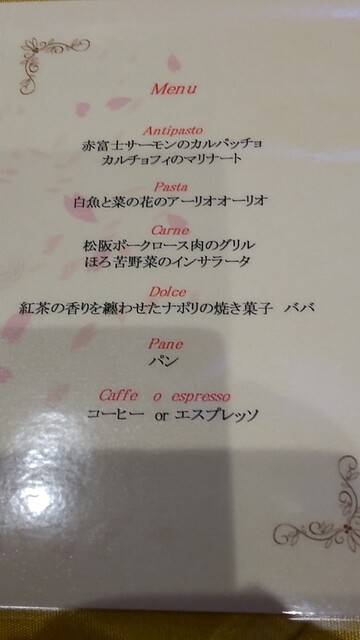 Menu
Antipasto
赤富士サーモンのカルパッチョ
カルチョフィのマリナート
Pasta
白魚と菜の花のアーリオオーリオ
Carne
松阪ポークロース肉のグリル
ほろ苦野菜のインサラータ
Dolce
紅茶の香りを纏わせたナポリの焼き菓子　ババ
Pane
パン
Caffe o espresso
コーヒー or エスプレッソ